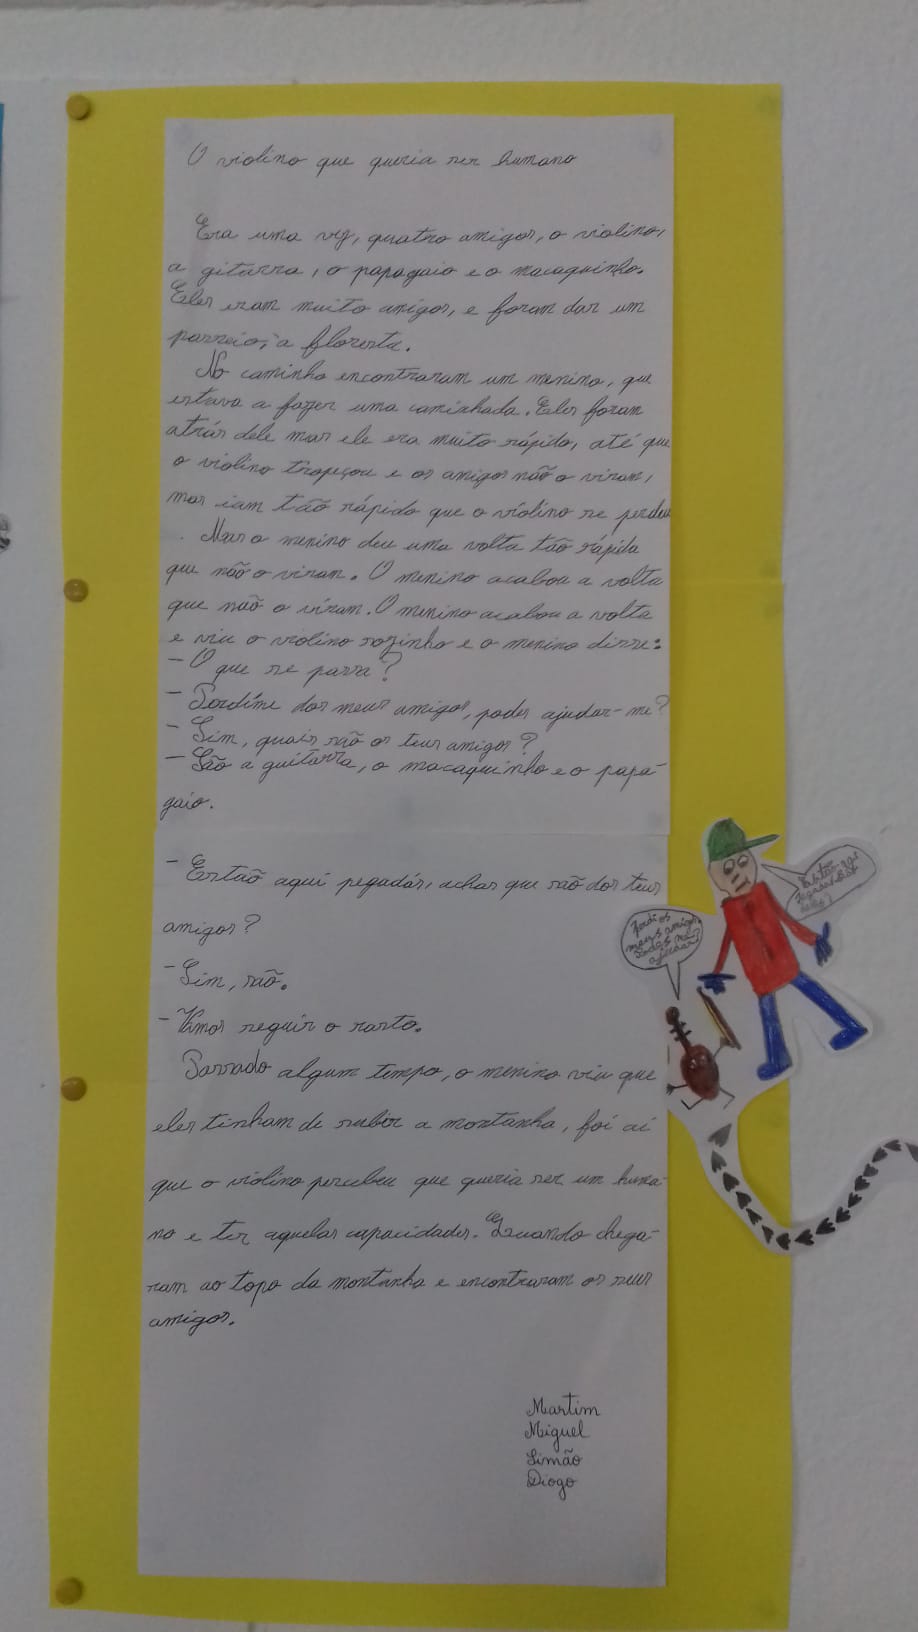 O violino que queria ser humano
Era uma vez, quatro amigos, o violino,
a gitarra, o papagaio e o macaquinho.
Eles eram muito amigos, e foram dar um
passeio, a floresta.
No caminho encontraram um menino, que
estava a fazer uma caminhada. Eles foram
atrás dele mas ele era muito rápido, até que
o violino tropeçou e os amigos não o viram,
mas iam tão rápido que o violino se perdeu
. Mas o menino deu uma volta tão rápida
que não o viram. O menino acabou a volta
que não o viram. O menino acabou a volta
e viu o violino sozinho e o menino disse:
- O que se passa?
- Perdíme dos meus amigos, podes ajudar-me?
- Sim, quais são os teus amigos?
- São a guitarra, o macaquinho e o papa-
gaio.
- Estão aqui pegadas, achas que são dos teus
amigos?
- Sim, são.
- Vamos seguir o rasto.
Passado algum tempo, o menino viu que
eles tinham de subir a montanha, foi aí
que o violino percebeu que queria ser um huma-
no e ter aquelas capacidades. Quando chega-
ram ao topo da montanha e encontraram os seus
amigos.
Martim
Miguel
Simão
Diogo
Perdi os
meus amigos
Podes me
ajudar?
Estão aqui
pegadas